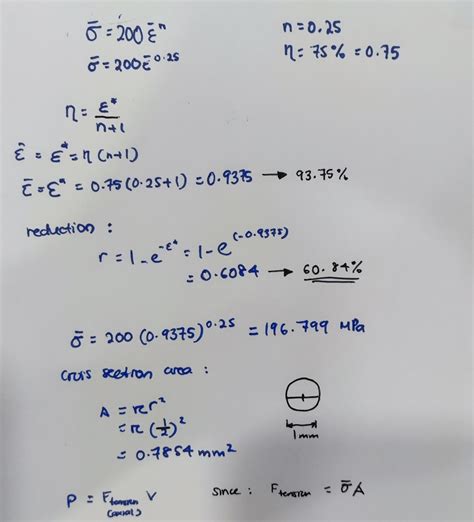 σ̄ = 200 ε̄ⁿ
n = 0.25
σ̄ = 200 ε̄^0.25
η = 75% = 0.75
η = ε*/n+1
ε̄ = ε* = η (n+1)
ε̄ = ε* = 0.75 (0.25+1) = 0.9375 → 93.75%
reduction :
r = 1 - e^-ε* = 1 - e^(-0.9375)
= 0.6084 → 60.84%
σ̄ = 200 (0.9375)^0.25 = 196.799 MPa
cross section area :
A = πr²
= π (1/2)²
= 0.7854 mm²
1mm
P = F_tension V
since : F_tension = σ̄A